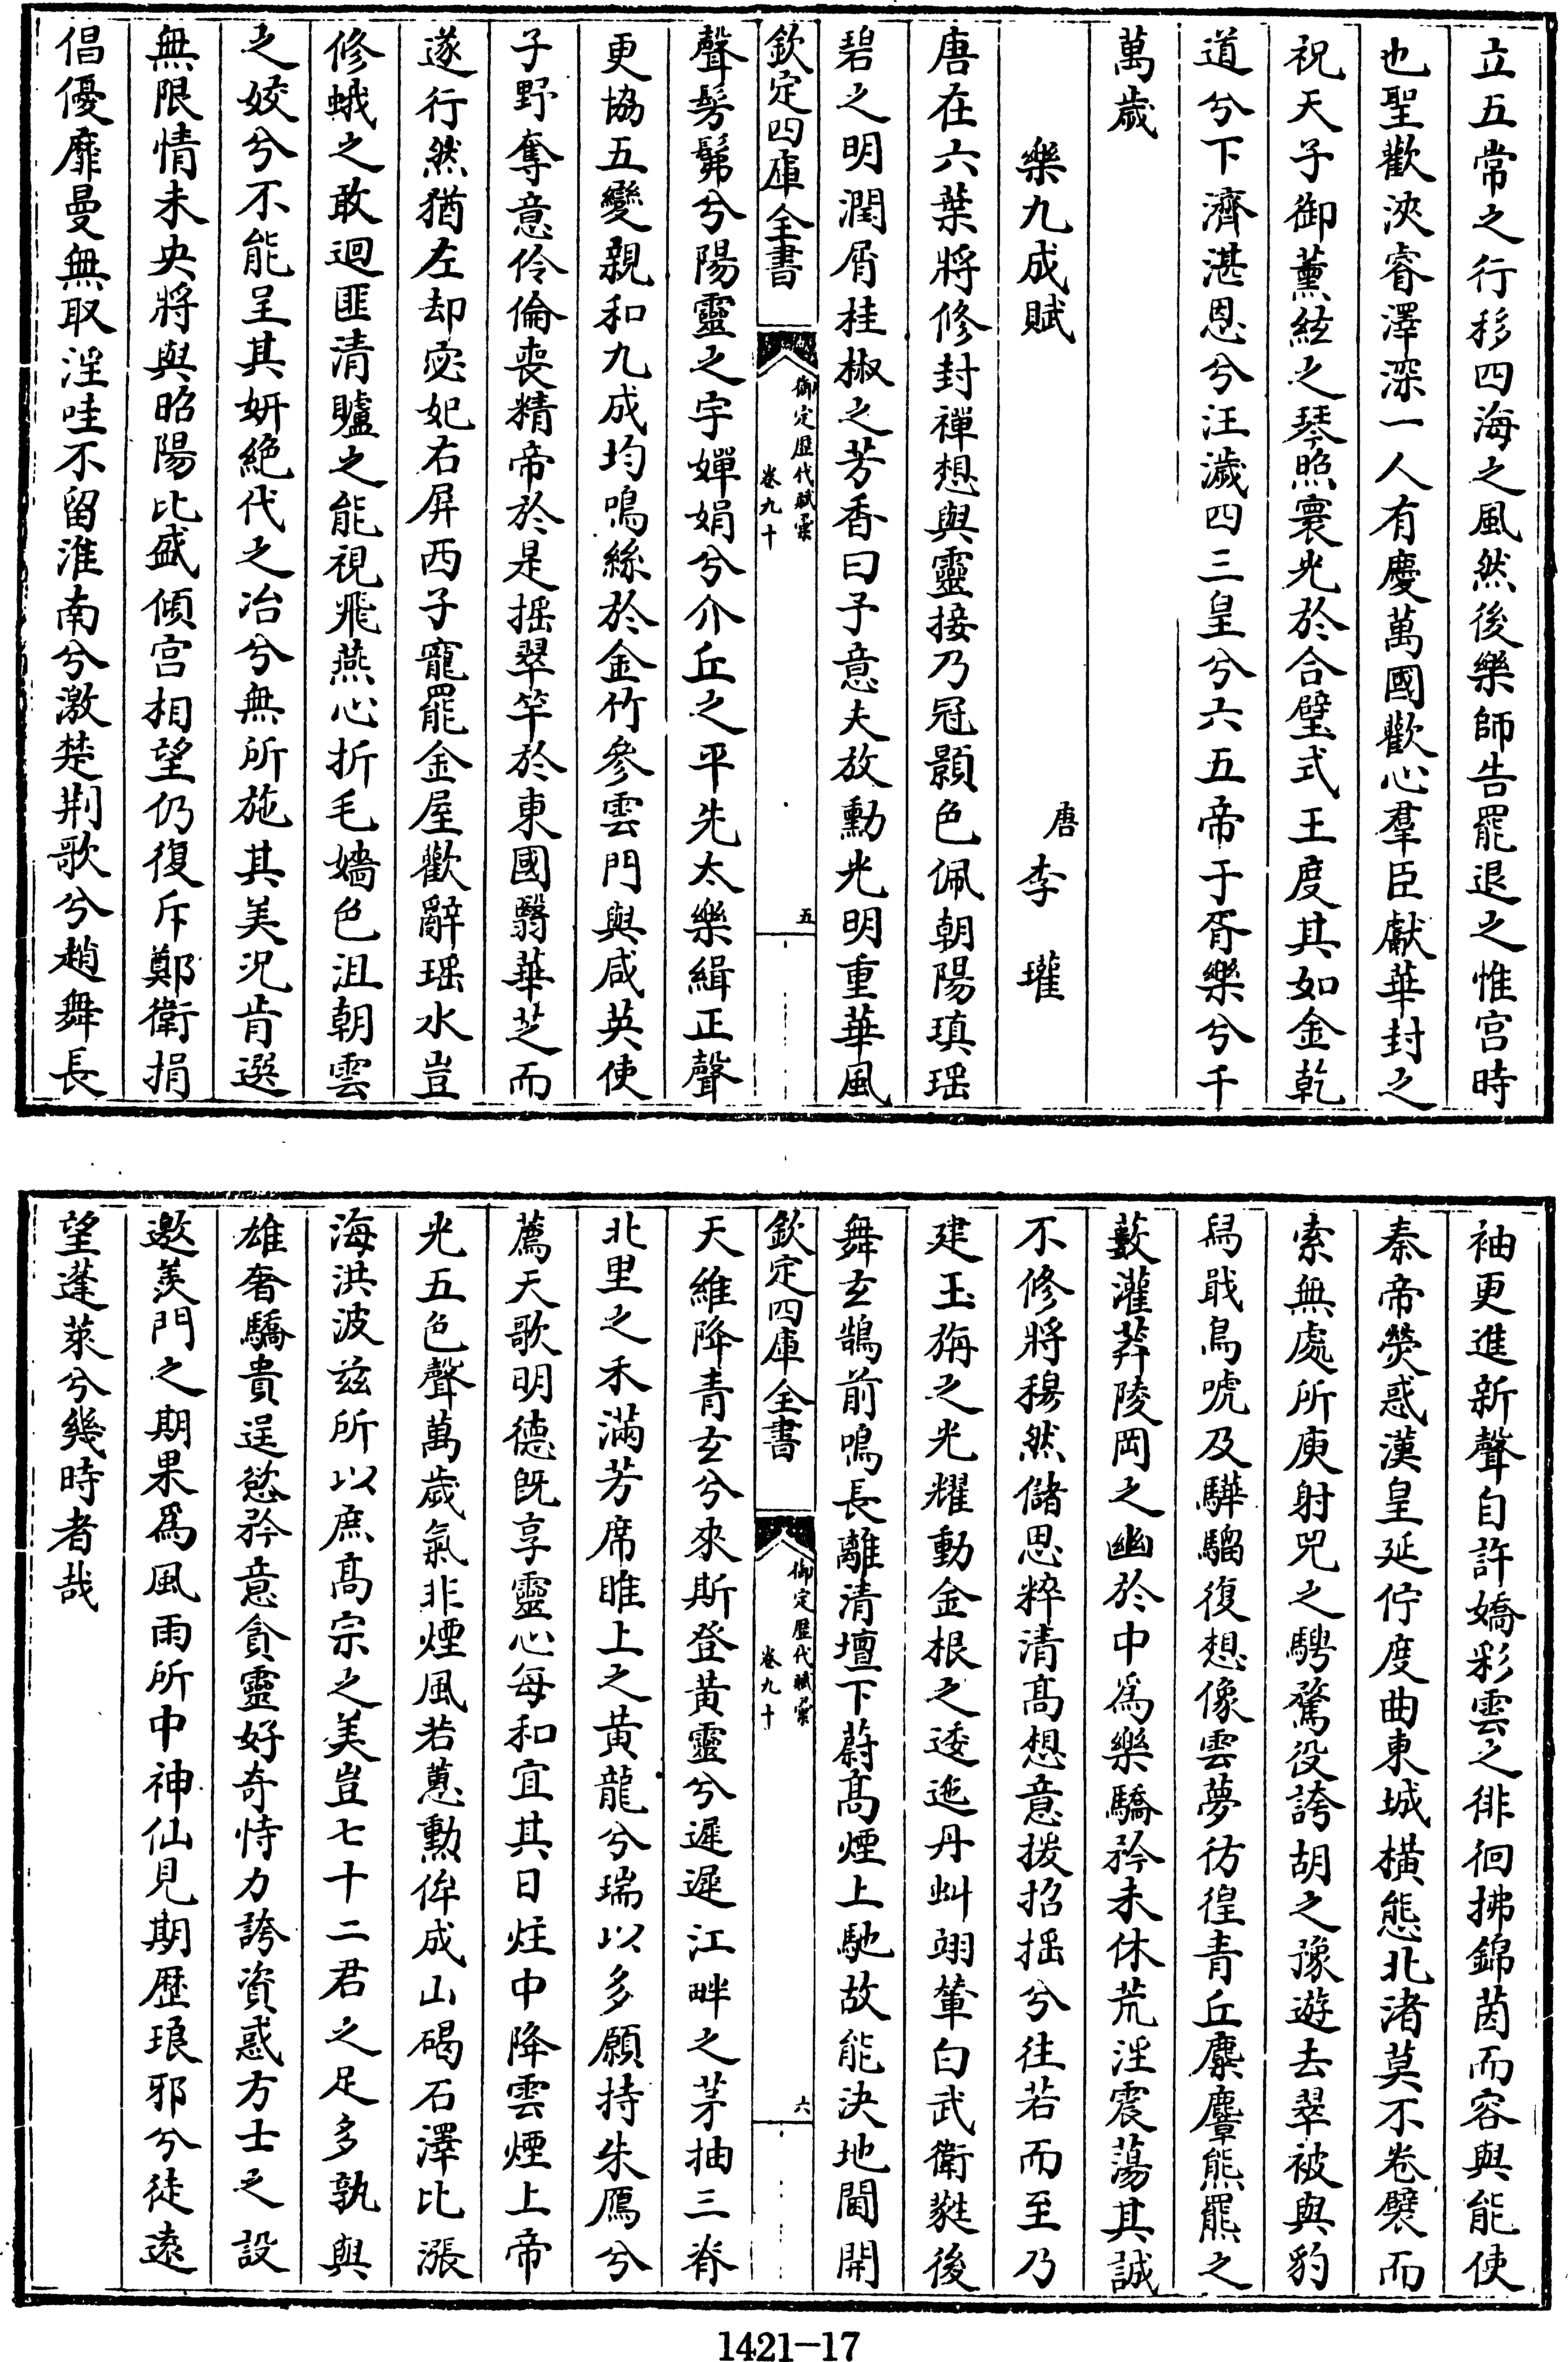 立五常之行移四海之風然後樂師告罷退之惟宫時
也聖歡浹睿澤深一人有慶萬國歡心羣臣獻華封之
祝天子御薰絃之琴照寰光於合璧式王度其如金乾
道兮下濟湛恩兮汪濊四三皇兮六五帝于胥樂兮千
萬歲
樂九成賦 唐 李 瓘
唐在六葉將修封禪想與靈接乃冠顥色佩朝陽瑱瑶
碧之明潤屑桂椒之芳香曰予意夫放勳光明重華風
欽定四庫全書 御定歴代賦彙 卷九十 五
聲髣髴兮陽靈之宇嬋娟兮介丘之平先太樂緝正聲
更協五變親和九成均鳴絲於金竹參雲門與咸英使
子野奪意伶倫喪精帝於是摇翠竿於東國翳華芝而
遂行然猶左却宓妃右屏西子寵罷金屋歡辭瑶水豈
修蛾之敢迴匪清矑之能視飛燕心折毛嬙色沮朝雲
之姣兮不能呈其妍絶代之冶兮無所施其美况肯選
無限情未央將與昭陽比盛傾宫相望仍復斥鄭衛捐
倡優靡曼無取淫哇不留淮南兮激楚荆歌兮趙舞長
袖更進新聲自許嬌彩雲之徘徊拂錦茵而容與能使
秦帝熒惑漢皇延佇度曲東城横態北渚莫不卷襞而
索無處所庾射兕之騁騖役誇胡之豫遊去翠被與豹
舄戢烏號及驊騮復想像雲夢彷徨青丘麋麞熊羆之
藪灌莽陵岡之幽於中爲樂驕矜未休荒淫震蕩其誠
不修將穆然儲思粹清髙想意援招摇兮往若而至乃
建玉旃之光耀動金根之逶迤丹虯翊輦白武衛蕤後
舞玄鵠前鳴長離清壇下蔚高煙上馳故能決地閫開
欽定四庫全書 御定歴代賦彙 卷九十 六
天維降青玄兮來斯登黄靈兮遲遲江畔之茅抽三脊
北里之禾滿芳席睢上之黄龍兮瑞以多願持朱鴈兮
薦天歌明德既享靈心每和宜其日炷中降雲煙上帝
光五色聲萬歲氣非煙風若蕙勳侔成山碣石澤比漲
海洪波兹所以庶高宗之美豈七十二君之足多孰與
雄奢驕貴逞慾矜意貪靈好奇恃力誇資惑方士之設
邀羨門之期果爲風雨所中神仙見期歴琅邪兮徒遠
望蓬萊兮幾時者哉
1421-17